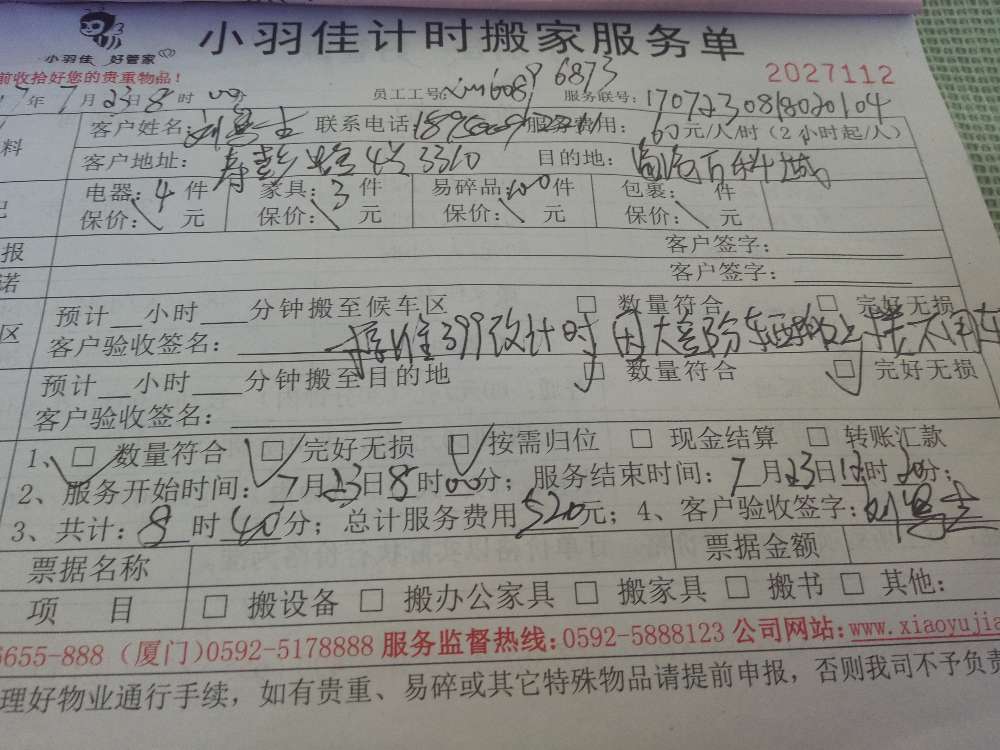 小羽佳计时搬家服务单
小羽佳 好管家
前收拾好您的贵重物品！
2027112
7年7月23日8时00分 员工工号: 6873 服务联号: 170723081802 0104
料 客户姓名: 联系电话: 服务费用: 60元/人/时（2小时起/人）
客户地址: 4号3310 目的地: 百科城
电器: 4件 家具: 3件 易碎品: 件 包裹: 件
保价: 元 保价: 元 保价: 元 保价: 元
报 客户签字:
诺 客户签字:
区 预计__小时___分钟搬至候车区 □ 数量符合 □ 完好无损
客户验收签名: 399改计时 因大部份
预计__小时___分钟搬至目的地 □ 数量符合 □ 完好无损
客户验收签名:
1、□ 数量符合 □ 完好无损 □ 按需归位 □ 现金结算 □ 转账汇款
2、服务开始时间: 7月23日8时00分；服务结束时间: 7月23日12时20分；
3、共计: 8时40分；总计服务费用520元；4、客户验收签字:
票据名称 票据金额
项 目 □ 搬设备 □ 搬办公家具 □ 搬家具 □ 搬书 □ 其他:
6655-888（厦门）0592-5178888 服务监督热线: 0592-5888123 公司网站: www.xiaoyujia
理好物业通行手续，如有贵重、易碎或其它特殊物品请提前申报，否则我司不予负责